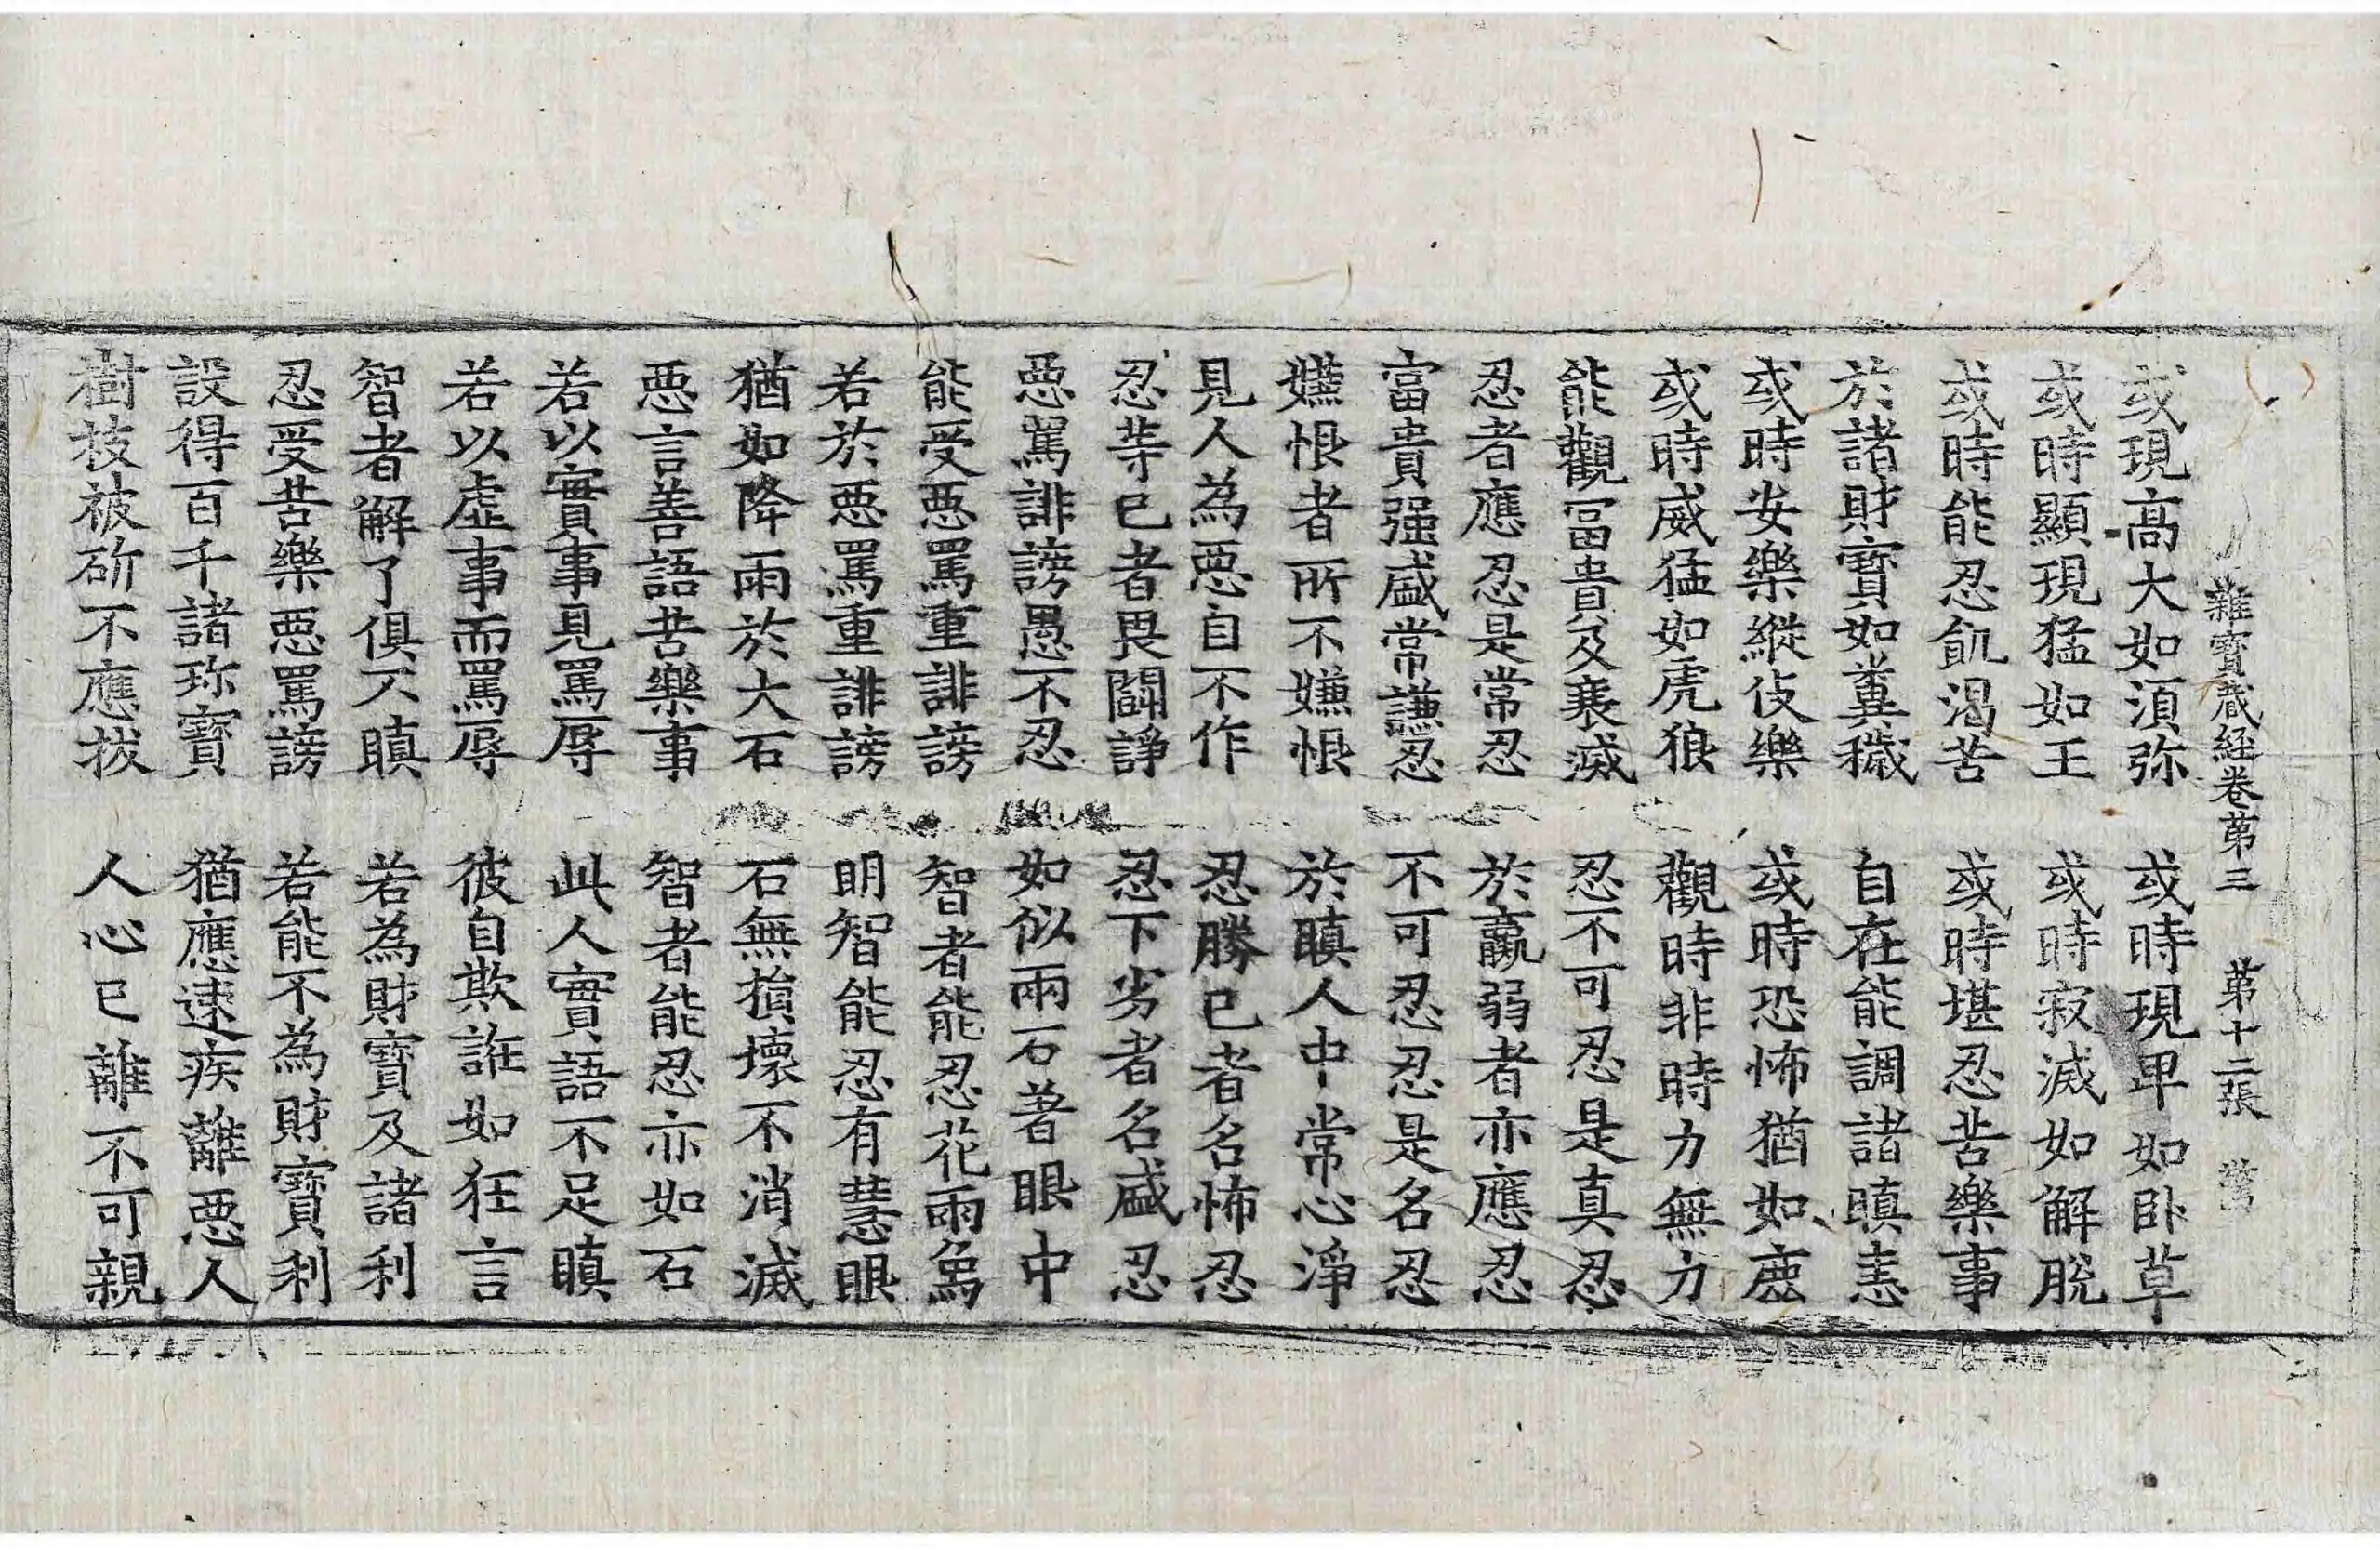 雜寶蔵経卷苐三 苐十二張 営
或現高大如湏弥 或時現卑如卧草
或時顯現猛如王 或時寂滅如解脫
或時能忍飢渴苦 或時堪忍苦樂事
於諸財寳如糞穢 自在能調諸瞋恚
或時安樂縱伎樂 或時恐怖猶如鹿
或時威猛如虎狼 觀時非時力無力
能觀冨貴及衰滅 忍不可忍是真忍
忍者應忍是常忍 於羸弱者亦應忍
富貴强盛常謙忍 不可忍忍是名忍
嬿恨者所不嫌恨 於瞋人中常心淨
見人為惡自不作 忍勝已者名怖忍
忍等已者畏鬪諍 忍下劣者名盛忍
惡罵誹謗愚不忍 如似兩石著眼中
能受惡罵重誹謗 智者能忍花雨象
若於惡罵重誹謗 明智能忍有慧眼
猶如降雨於大石 石無損壞不消滅
惡言善語苦樂事 智者能忍亦如石
若以實事見罵辱 此人實語不足瞋
若以虛事而罵辱 彼自欺誑如狂言
智者解了俱不瞋 若為財寳及諸利
忍受苦樂惡罵謗 若能不為財寳利
設得百千諸珎寳 猶應速疾離惡人
樹枝被斫不應拔 人心已離不可親